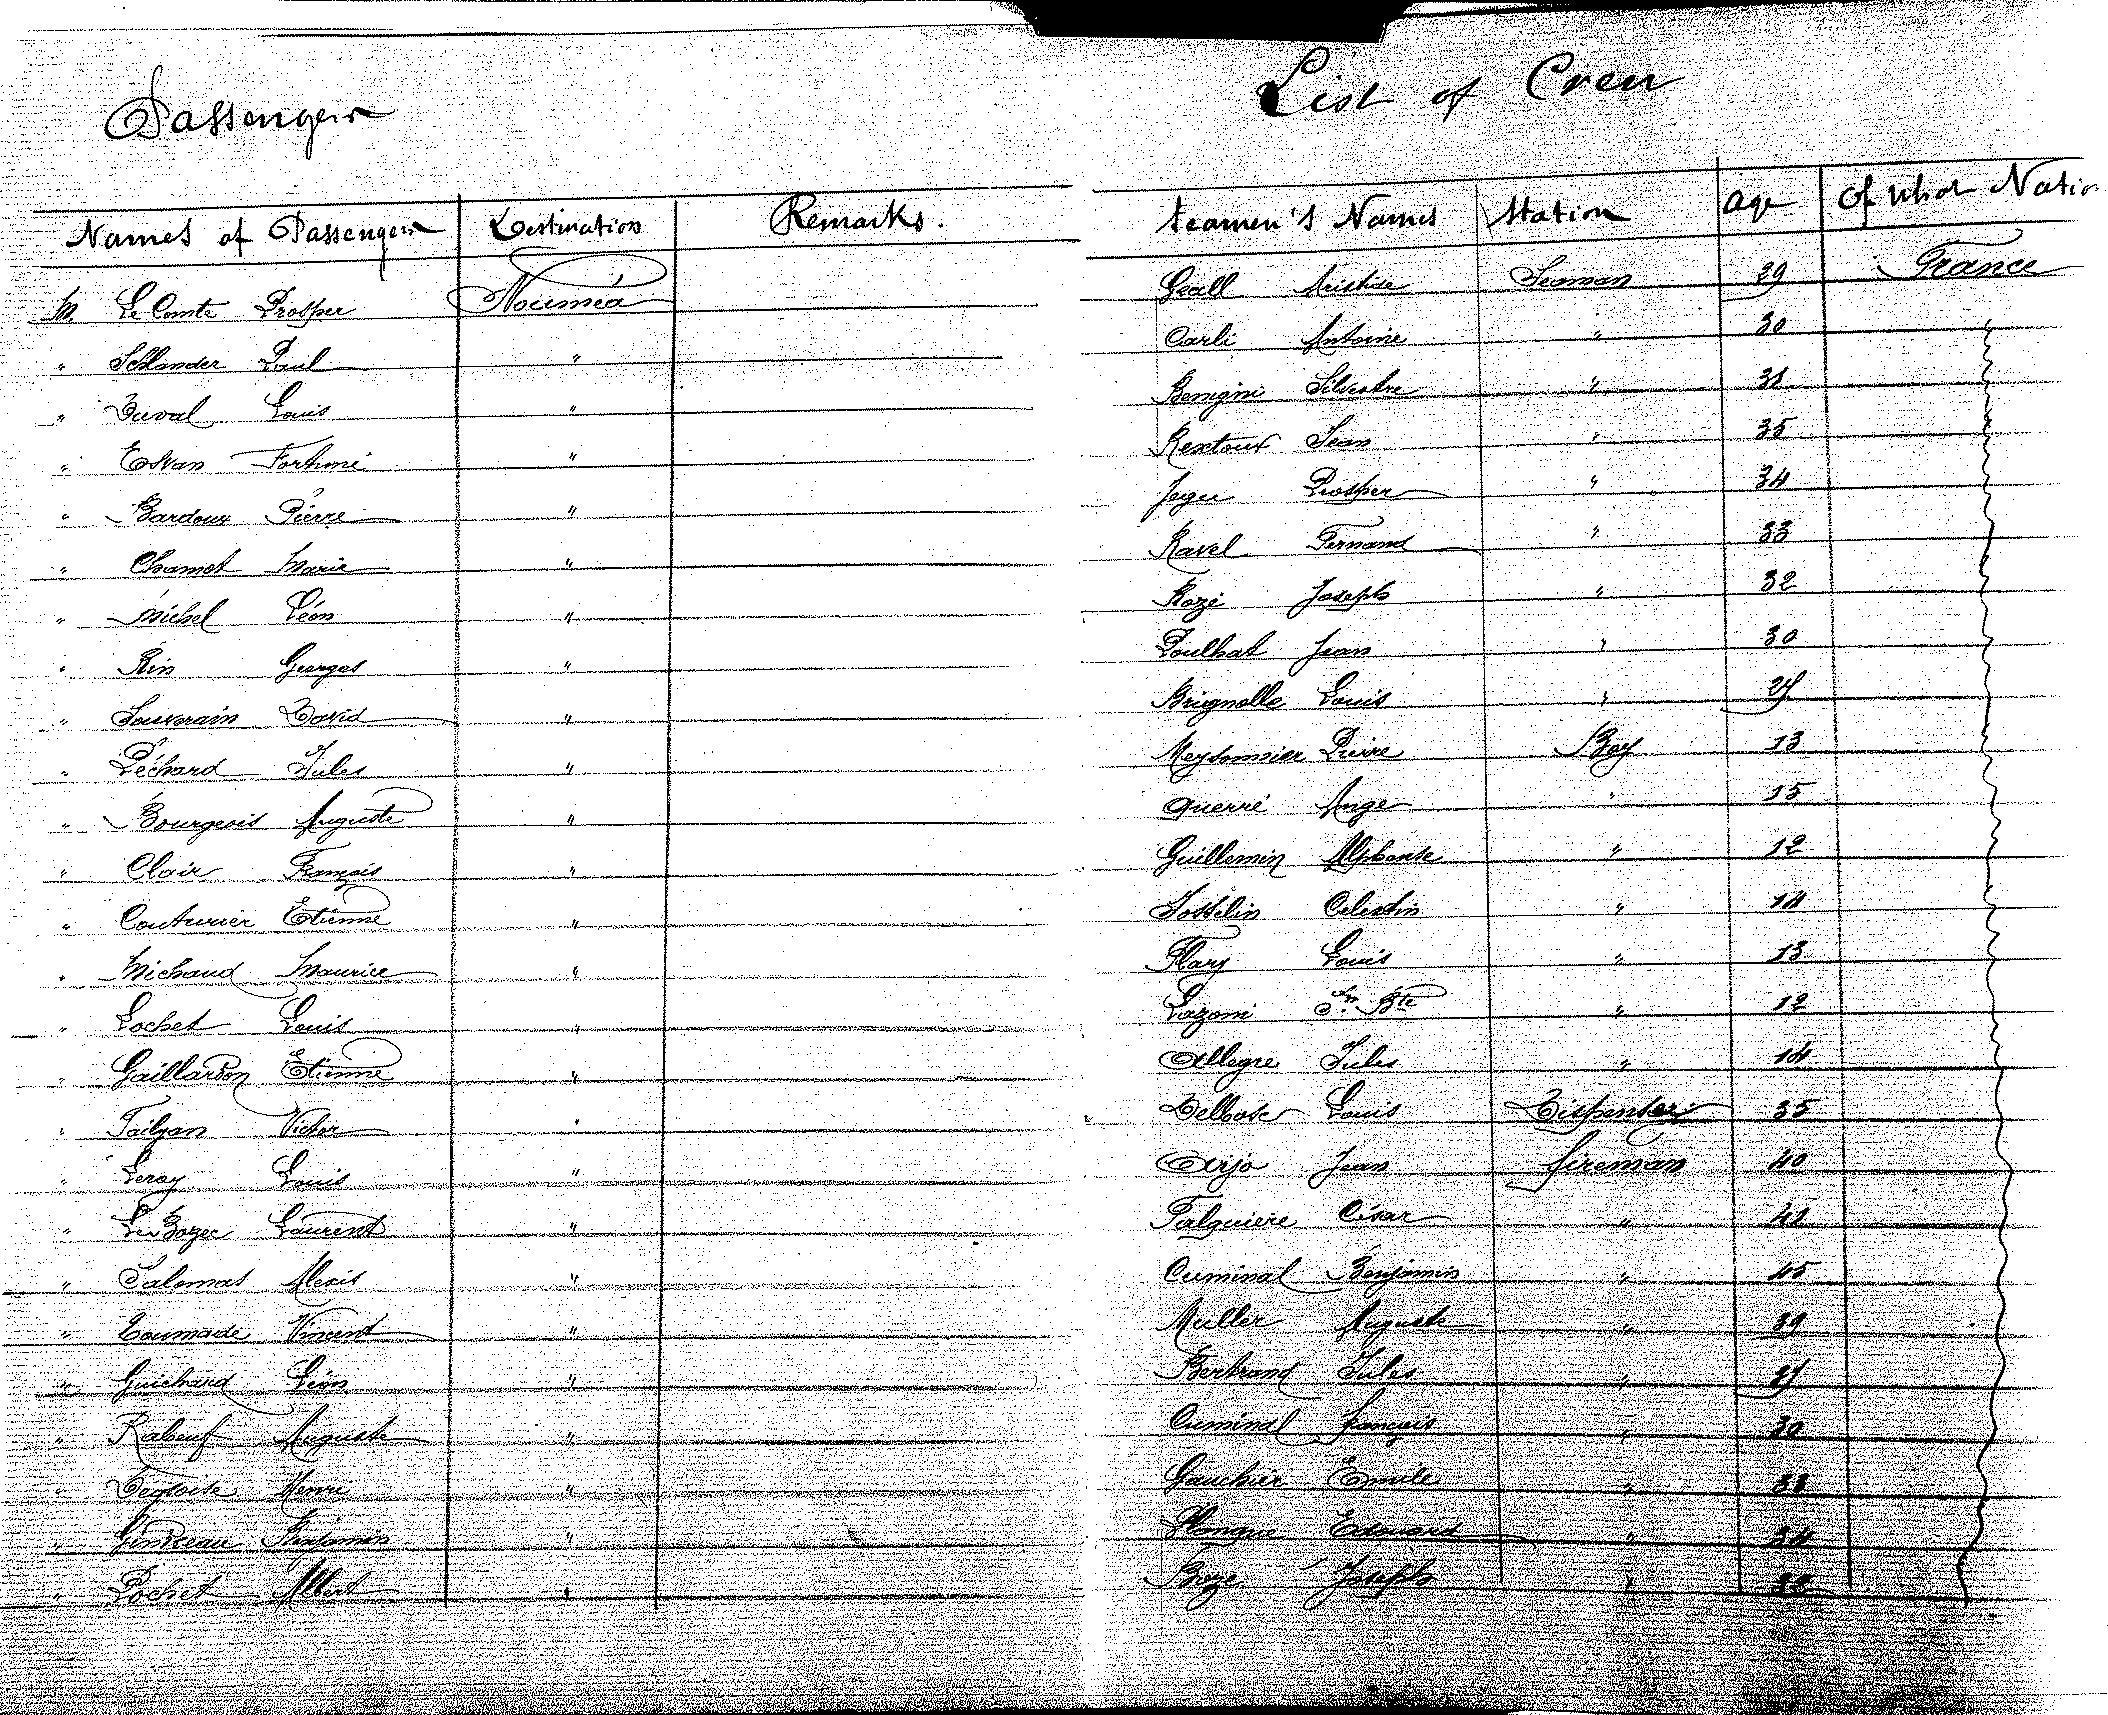 Passengers
Names of Passengers Destination Remarks.
M. Le Comte Prosper Nouméa
" Schlander Paul "
" Duval Louis "
" Esvan Fortuné "
" Bardoux Pierre "
" Chamot Marie "
" Michel Léon "
" Rin Georges "
" Souverain David "
" Péchard Jules "
" Bourgeois Auguste "
" Clair François "
" Couturier Etienne "
" Michaud Maurice "
" Lochet Louis "
" Gaillardon Etienne "
" Victor "
" Leroy Louis "
" Le Bozec Laurent "
" Salomas Alexis "
" Toumade Vincent "
" Guichaud Léon "
" Rabeuf Auguste "
" Henri "
" Gendreau Benjamin "
" Pochet Albert "
List of Crew
Seamen's Names Station Age Of what Natio
Geall Aristide Seaman 29 France
Carli Antoine " 30 "
Benigni Silvestre " 31
Rentoux Jean " 35
Jeger Prosper " 34
Ravel Fernand " 33
Rozé Joseph " 32
Poulhat Jean " 30
Brignolle Louis " 27
Meysonnier Pierre Boy 13
Querré Ange " 15
Guillemin Alphonse " 12
Josselin Celestin " 14
Flory Louis " 13
Lazoni Jn Bte " 12
Allegre Jules " 14
Delbose Louis Dispenser 35
Orjo Jean fireman 40
Falguiere César " 42
Cuminal Benjamin " 45
Muller Auguste " 39
Bertrand Jules " 27
Cuminal françois " 30
Gauthier Emile " 38
Edouard " 34
Boze Joseph "